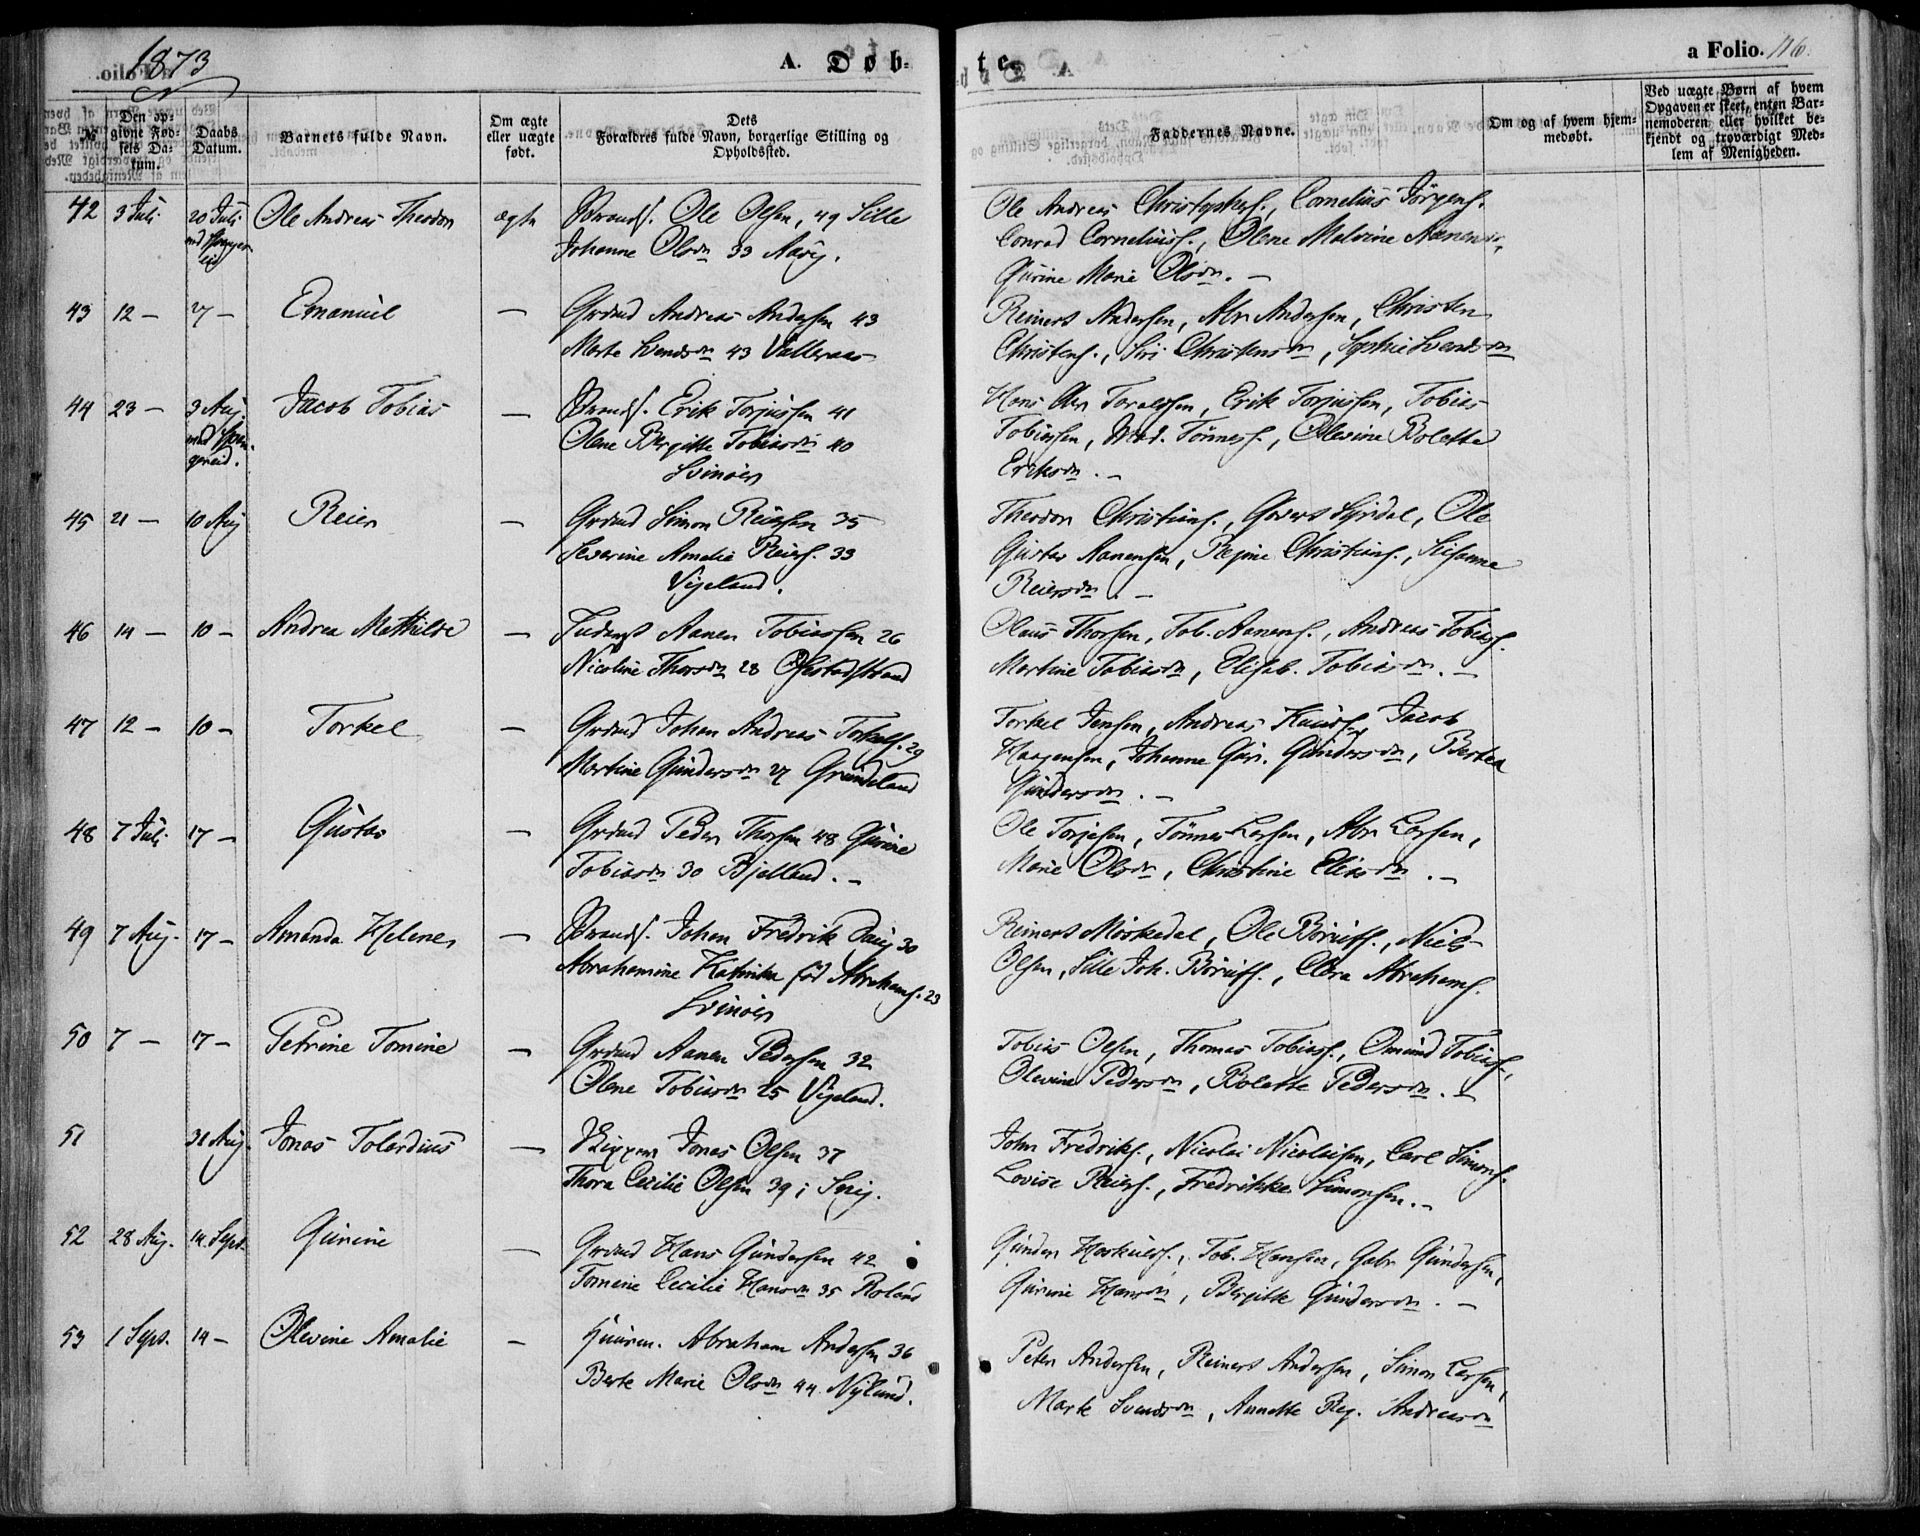 1873
A. Døb-
te.
a Folio. 116.
№
Den op-
givne Fød-
sels Da-
tum.
Daabs
Datum.
Barnets fulde Navn.
Om ægte
eller uægte
født.
Dets
Forældres fulde Navn, borgerlige Stilling og
Opholdssted.
Faddernes Navne.
Om og af hvem hjem-
medøbt.
Ved uægte Børn af hvem
Opgaven er skeet, enten Bar-
nemoderen eller hvilket be-
kjendt og troværdigt Med-
lem af Menigheden.
42 3 Juli 20 Juli Ole Andreas Theodor ægte Strands. Ole Olsen, 49 Sille
Johanne Olsdn 33 Aavig.
Ole Andreas Christophers., Cornelius Jörgens.
Conrad Corneliuss., Olene Malvine
Gurine Marie Olsdn. –
43 12 – 27 – Emanuel – Grdmd Andreas Andersen 43
Marte Svendsdn 43 Valleraas
Reinert Andersen, Abr Andersen, Christen
Christens., Siri Christensdn, Sophie Svendsdn
44 23 – 3 Aug. Jacob Tobias – Strands. Erik Torjussen 41
Olene Bergitte Tobiasdn 40
Svinöer
Hans Torelssen, Erik Torjussen, Tobias
Tobiassen, Mad. Tönness., Olevine Bolette
Eriksdn. –
45 21 – 10 Aug Reier – Grdmd Simon Reiersen 35
Severine Amalie Reiers. 33
Vigeland.
Theodor Christians., Govert Syrdal, Ole
Gustav Aanensen, Regine Christians., Susanne
Reiersdn. –
46 14 – 10 – Andrea Mathilde – Inderst Aanen Tobiassen 26
Nicoline Thorsdn 28 Ofstadstrand
Olaus Thorsen, Tob. Aanens., Andreas Tobiass.
Martine Tobiasdn, Elisab. Tobiasdn. –
47 12 – 10 – Torkel – Grdmd Johan Andreas Torkels. 29
Martine Gundersdn 27 Grundeland
Torkel Jensen, Andreas Jacob
Haagensen, Johanne Guri. Gundersdn, Bertea
Gundersdn. –
48 7 Juli 17 – Gustav – Grdmd Peder Thorsen 48 Gurine
Tobiasdn 30 Bjelland. –
Ole Torjesen, Tönnes Larsen, Abr Larsen,
Marie Olsdn, Christine Eliasdn. –
49 7 Aug. 17 – Amanda Helene – Strands. Johan Fredrik 30
Abrahamine Kathinka född Abrahams. 23
Svinöer
Reinert Moskedal, Ole Börufs., Niels
Olsen, Sille Joh. Börufs., Clara Abrahams.
50 7 – 17 – Petrine Tomine – Grdmd Aanen Pedersen 32
Olene Tobiasdn 25 Vigeland.
Tobias Olsen, Thomas Tobiass., Omund Tobiass.,
Olevine Pedersdn, Bolette Pedersdn. –
51 31 Aug. Jonas Tolardius – Skipper Jonas Olsen 37
Thora Cecilie Olsen 39 i Snig.
John Fredriks., Nicolai Nicolaisen, Carl Simons.
Lovise Reiers., Fredrikke Simonsen. –
52 28 Aug. 14. Sept. Gurine – Grdmd Hans Gundersen 42
Tomine Cecilie Hansdn 35 Roland
Gunder Haskuers., Tob. Hansen, Gabr Gundersen,
Gurine Hansdn, Bergitte Gundersdn. –
53 1 Sept. 14 – Olevine Amalie – Huusm. Abraham Andersen 36
Berte Marie Olsdn 44 Nylund.
Peter Andersen, Reinert Andersen, Simon Larsen,
Marte Svendsdn, Annette Reg. Andreasdn